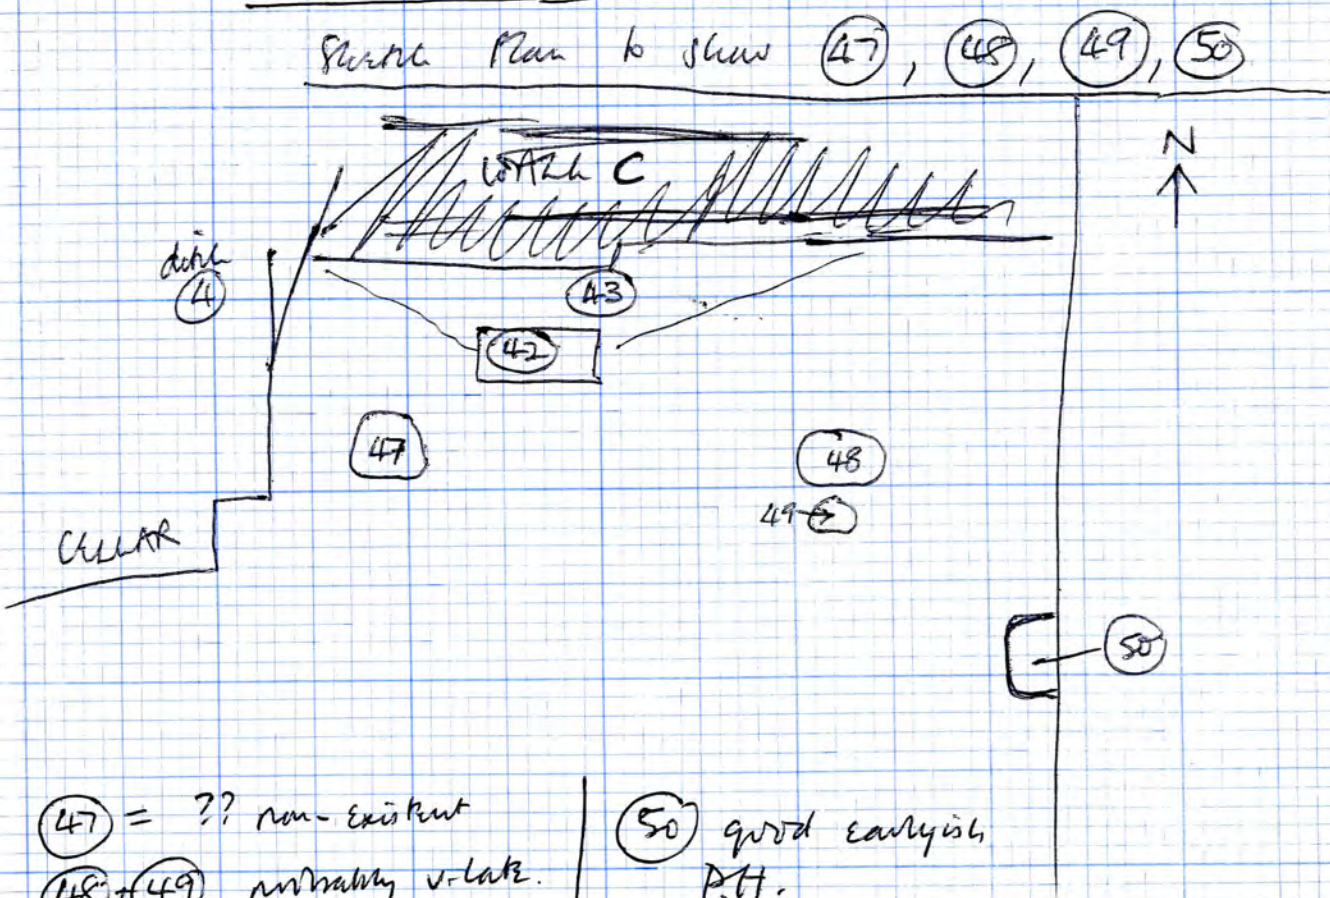 Sketch Plan to show 47, 48, 49, 50
N
WALL C
ditch
4
43
42
47
48
49
CELLAR
50
47 = ?? non-existent
48 + 49 probably v. late.
50 good earlyish
P.H.